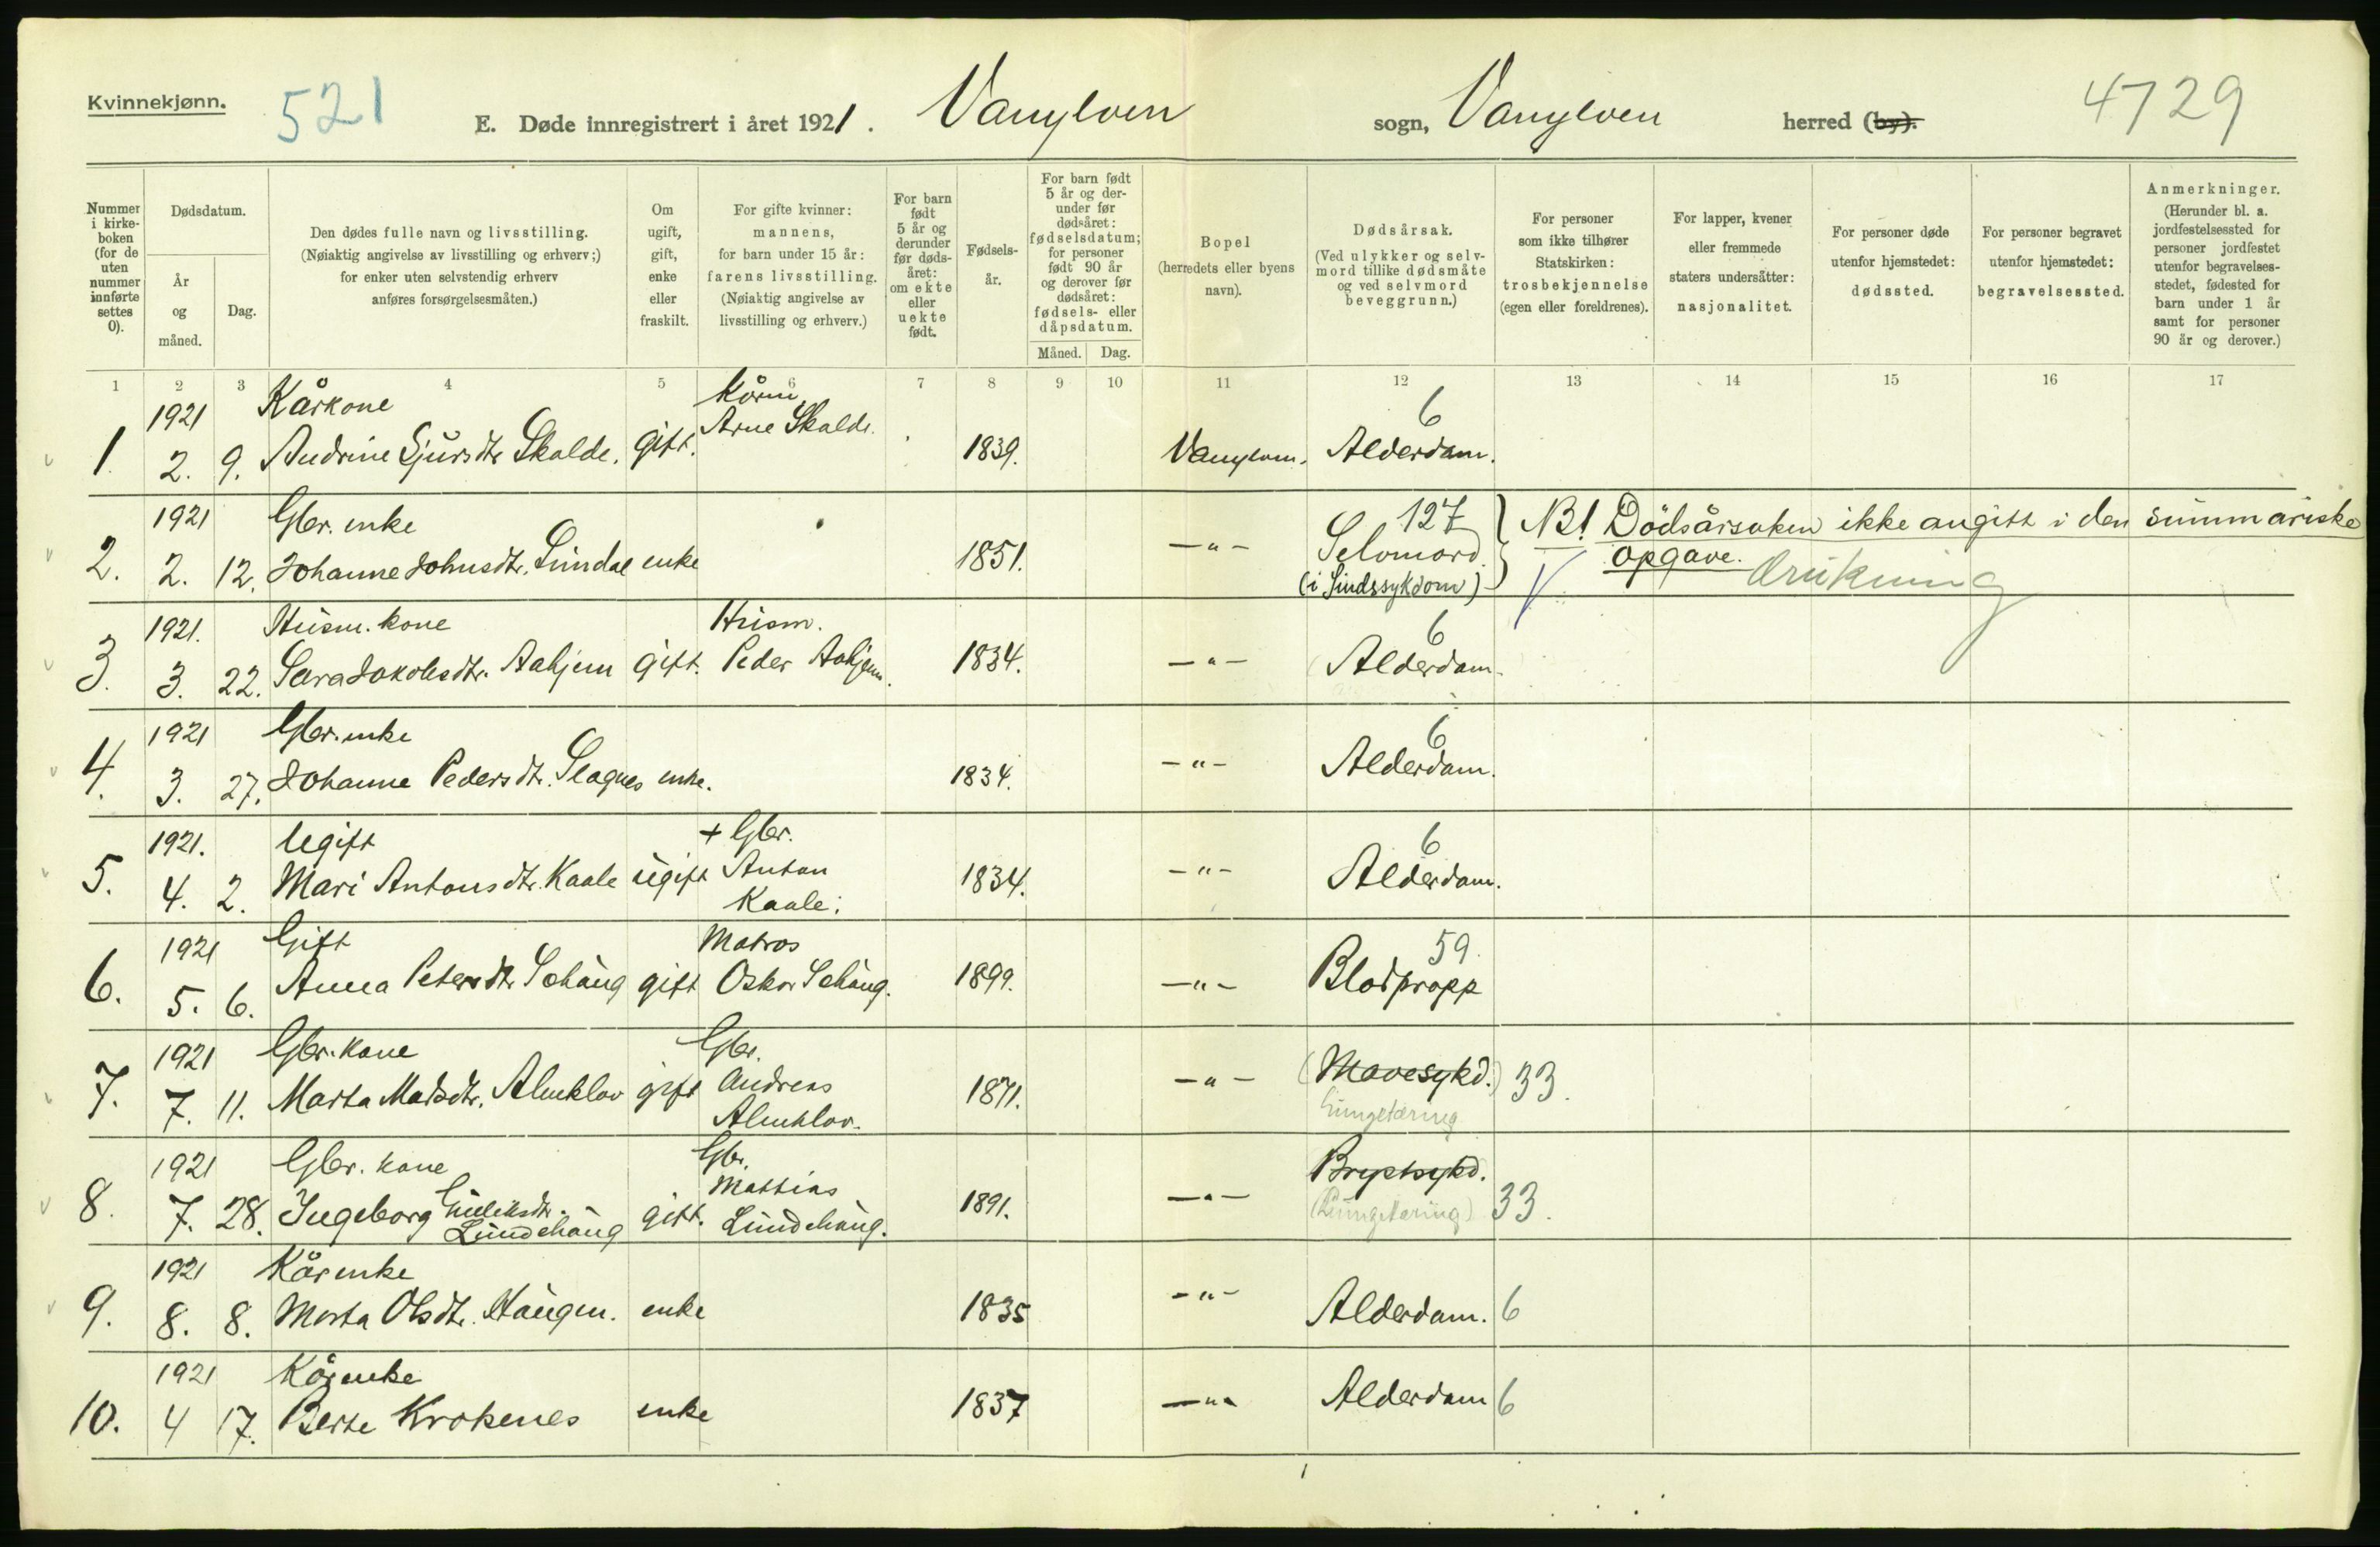 Kvinnekjønn.
521
E. Døde innregistrert i året 1921. Vanylven sogn, Vanylven herred (by).
4729
Nummer i kirkeboken (for de uten nummer innførte settes 0).
Dødsdatum.
År og måned.
Dag.
Den dødes fulle navn og livsstilling.
(Nøiaktig angivelse av livsstilling og erhverv;)
for enker uten selvstendig erhverv
anføres forsørgelsesmåten.)
Om ugift, gift, enke eller fraskilt.
For gifte kvinner:
mannens,
for barn under 15 år:
farens livsstilling.
(Nøiaktig angivelse av
livsstilling og erhverv.)
For barn født 5 år og derunder før dødsåret: om ekte eller uekte født.
Fødselsår.
For barn født 5 år og derunder før dødsåret: fødselsdatum; for personer født 90 år og derover før dødsåret: fødsels- eller dåpsdatum.
Måned. Dag.
Bopel
(herredets eller byens
navn).
Dødsårsak.
(Ved ulykker og selvmord tillike dødsmåte og ved selvmord beveggrunn.)
For personer
som ikke tilhører
Statskirken:
trosbekjennelse
(egen eller foreldrenes).
For lapper, kvener
eller fremmede
staters undersåtter:
nasjonalitet.
For personer døde
utenfor hjemstedet:
dødssted.
For personer begravet
utenfor hjemstedet:
begravelsessted.
Anmerkninger.
(Herunder bl. a.
jordfestelsessted for
personer jordfestet
utenfor begravelses-
stedet, fødested for
barn under 1 år
samt for personer
90 år og derover.)
1 2 3 4 5 6 7 8 9 10 11 12 13 14 15 16 17
1921 Kårkone 6
1. 2. 9. Andrine Sjursdtr Skalde. gift. Arne Skalde. 1839. Vanylven. Alderdom.
1921 Gbr. enke 127 NB! Dödsårsaken ikke angitt i den summariske
2. 2. 12. Johanne Johnsdtr. Lindal enke 1851. —"— Selvmord opgave. Drukning
(i Sindssykdom)
1921. Husm. kone Husm. 6
3. 3. 22. Sara Jakobsdtr. Aahjem gift. Peder Aahjem. 1834. —"— Alderdom.
1921 Gbr. enke 6
4. 3. 27. Johanne Pedersdtr. Slagnes enke. 1834. —"— Alderdom.
1921. Ugift + Gbr. 6
5. 4. 2. Mari Antonsdtr. Kaale ugift Anton Kaale. 1834. —"— Alderdom.
1921 Gift Matros 59.
6. 5. 6. Anna Petersdtr. gift Oskar 1899. —"— Blodpropp
1921 Gbr. kone Gbr.
7. 7. 11. Marta Madsdtr. Almklov gift Andreas Almklov. 1871. —"— (Mavesykd.) 33.
Lungetæring
1921 Gbr. kone Gbr. Brystsykd.
8. 7. 28. Ingeborg Lundehaug gift. Mattias Lundehaug. 1891. —"— (Lungetæring) 33.
1921 Kårenke
9. 8. 8. Marta Olsdtr. Haugen. enke 1835 —"— Alderdom. 6
1921 Kårenke
10. 4 17. Berte Krokenes enke 1837 —"— Alderdom 6